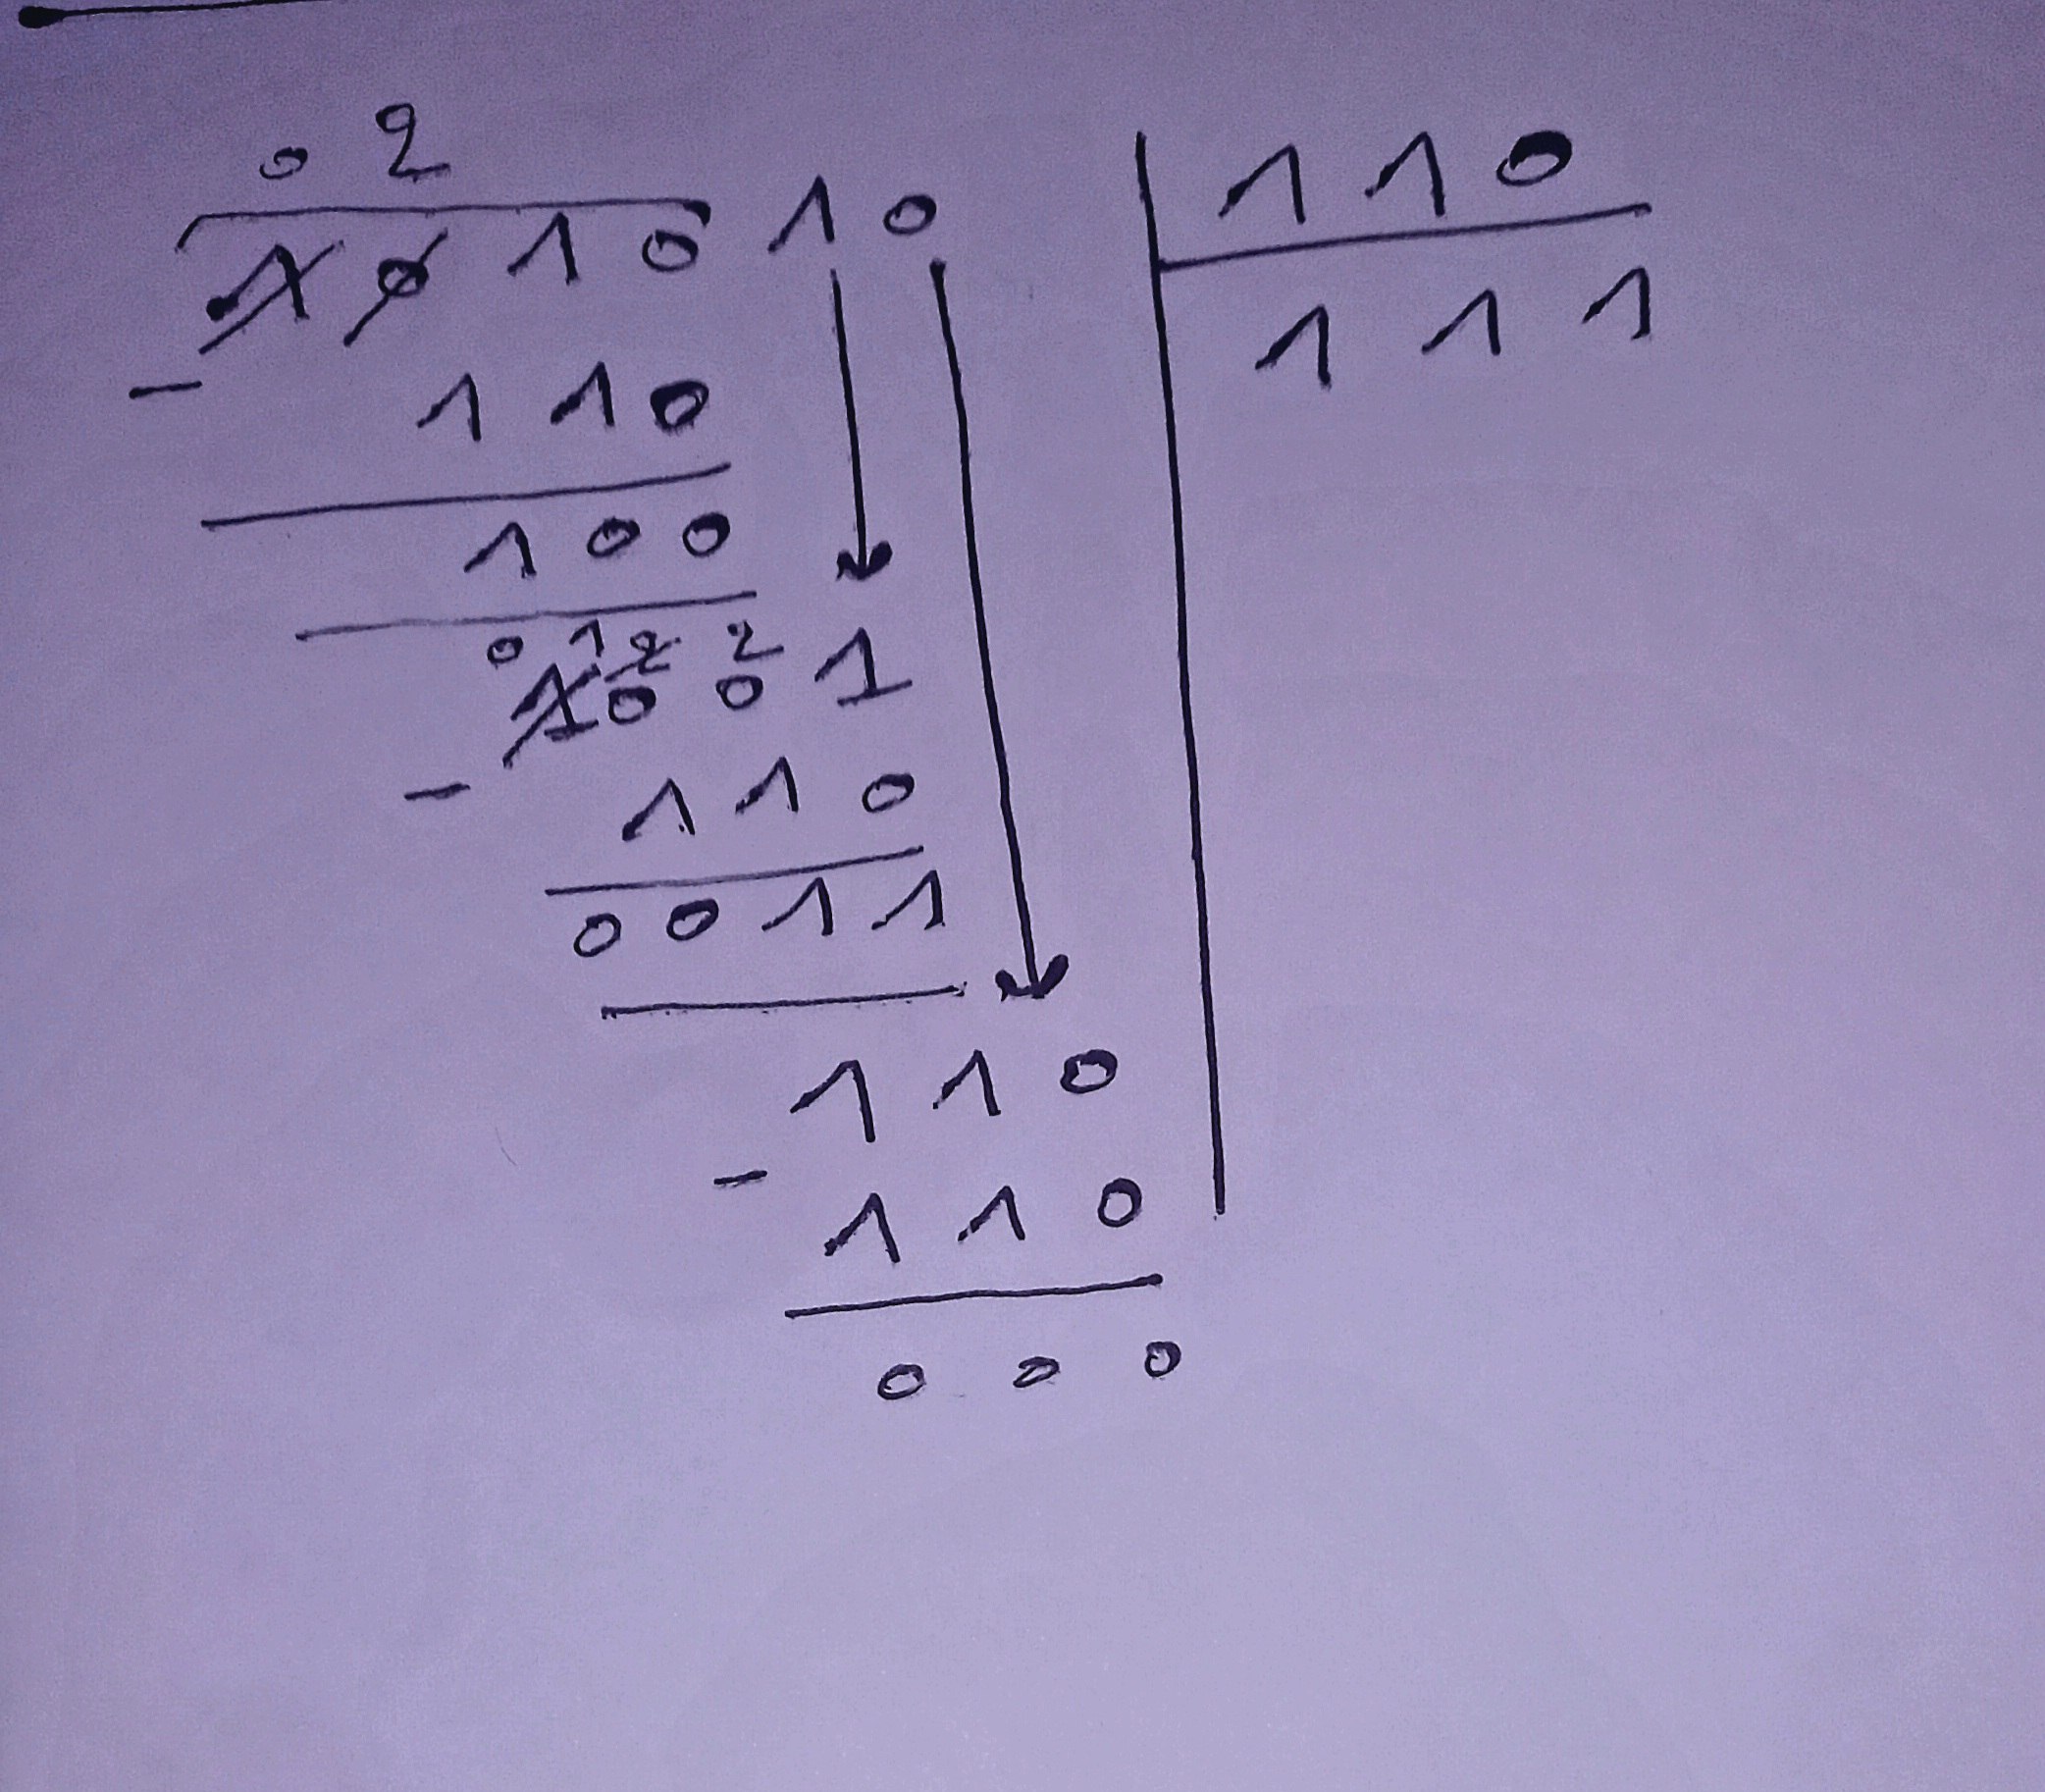 0 2
1 0 1 0 1 0 1 1 0
1 1 1
- 1 1 0
1 0 0
0 1 2 2
1 0 0 1
- 1 1 0
0 0 1 1
1 1 0
- 1 1 0
0 0 0